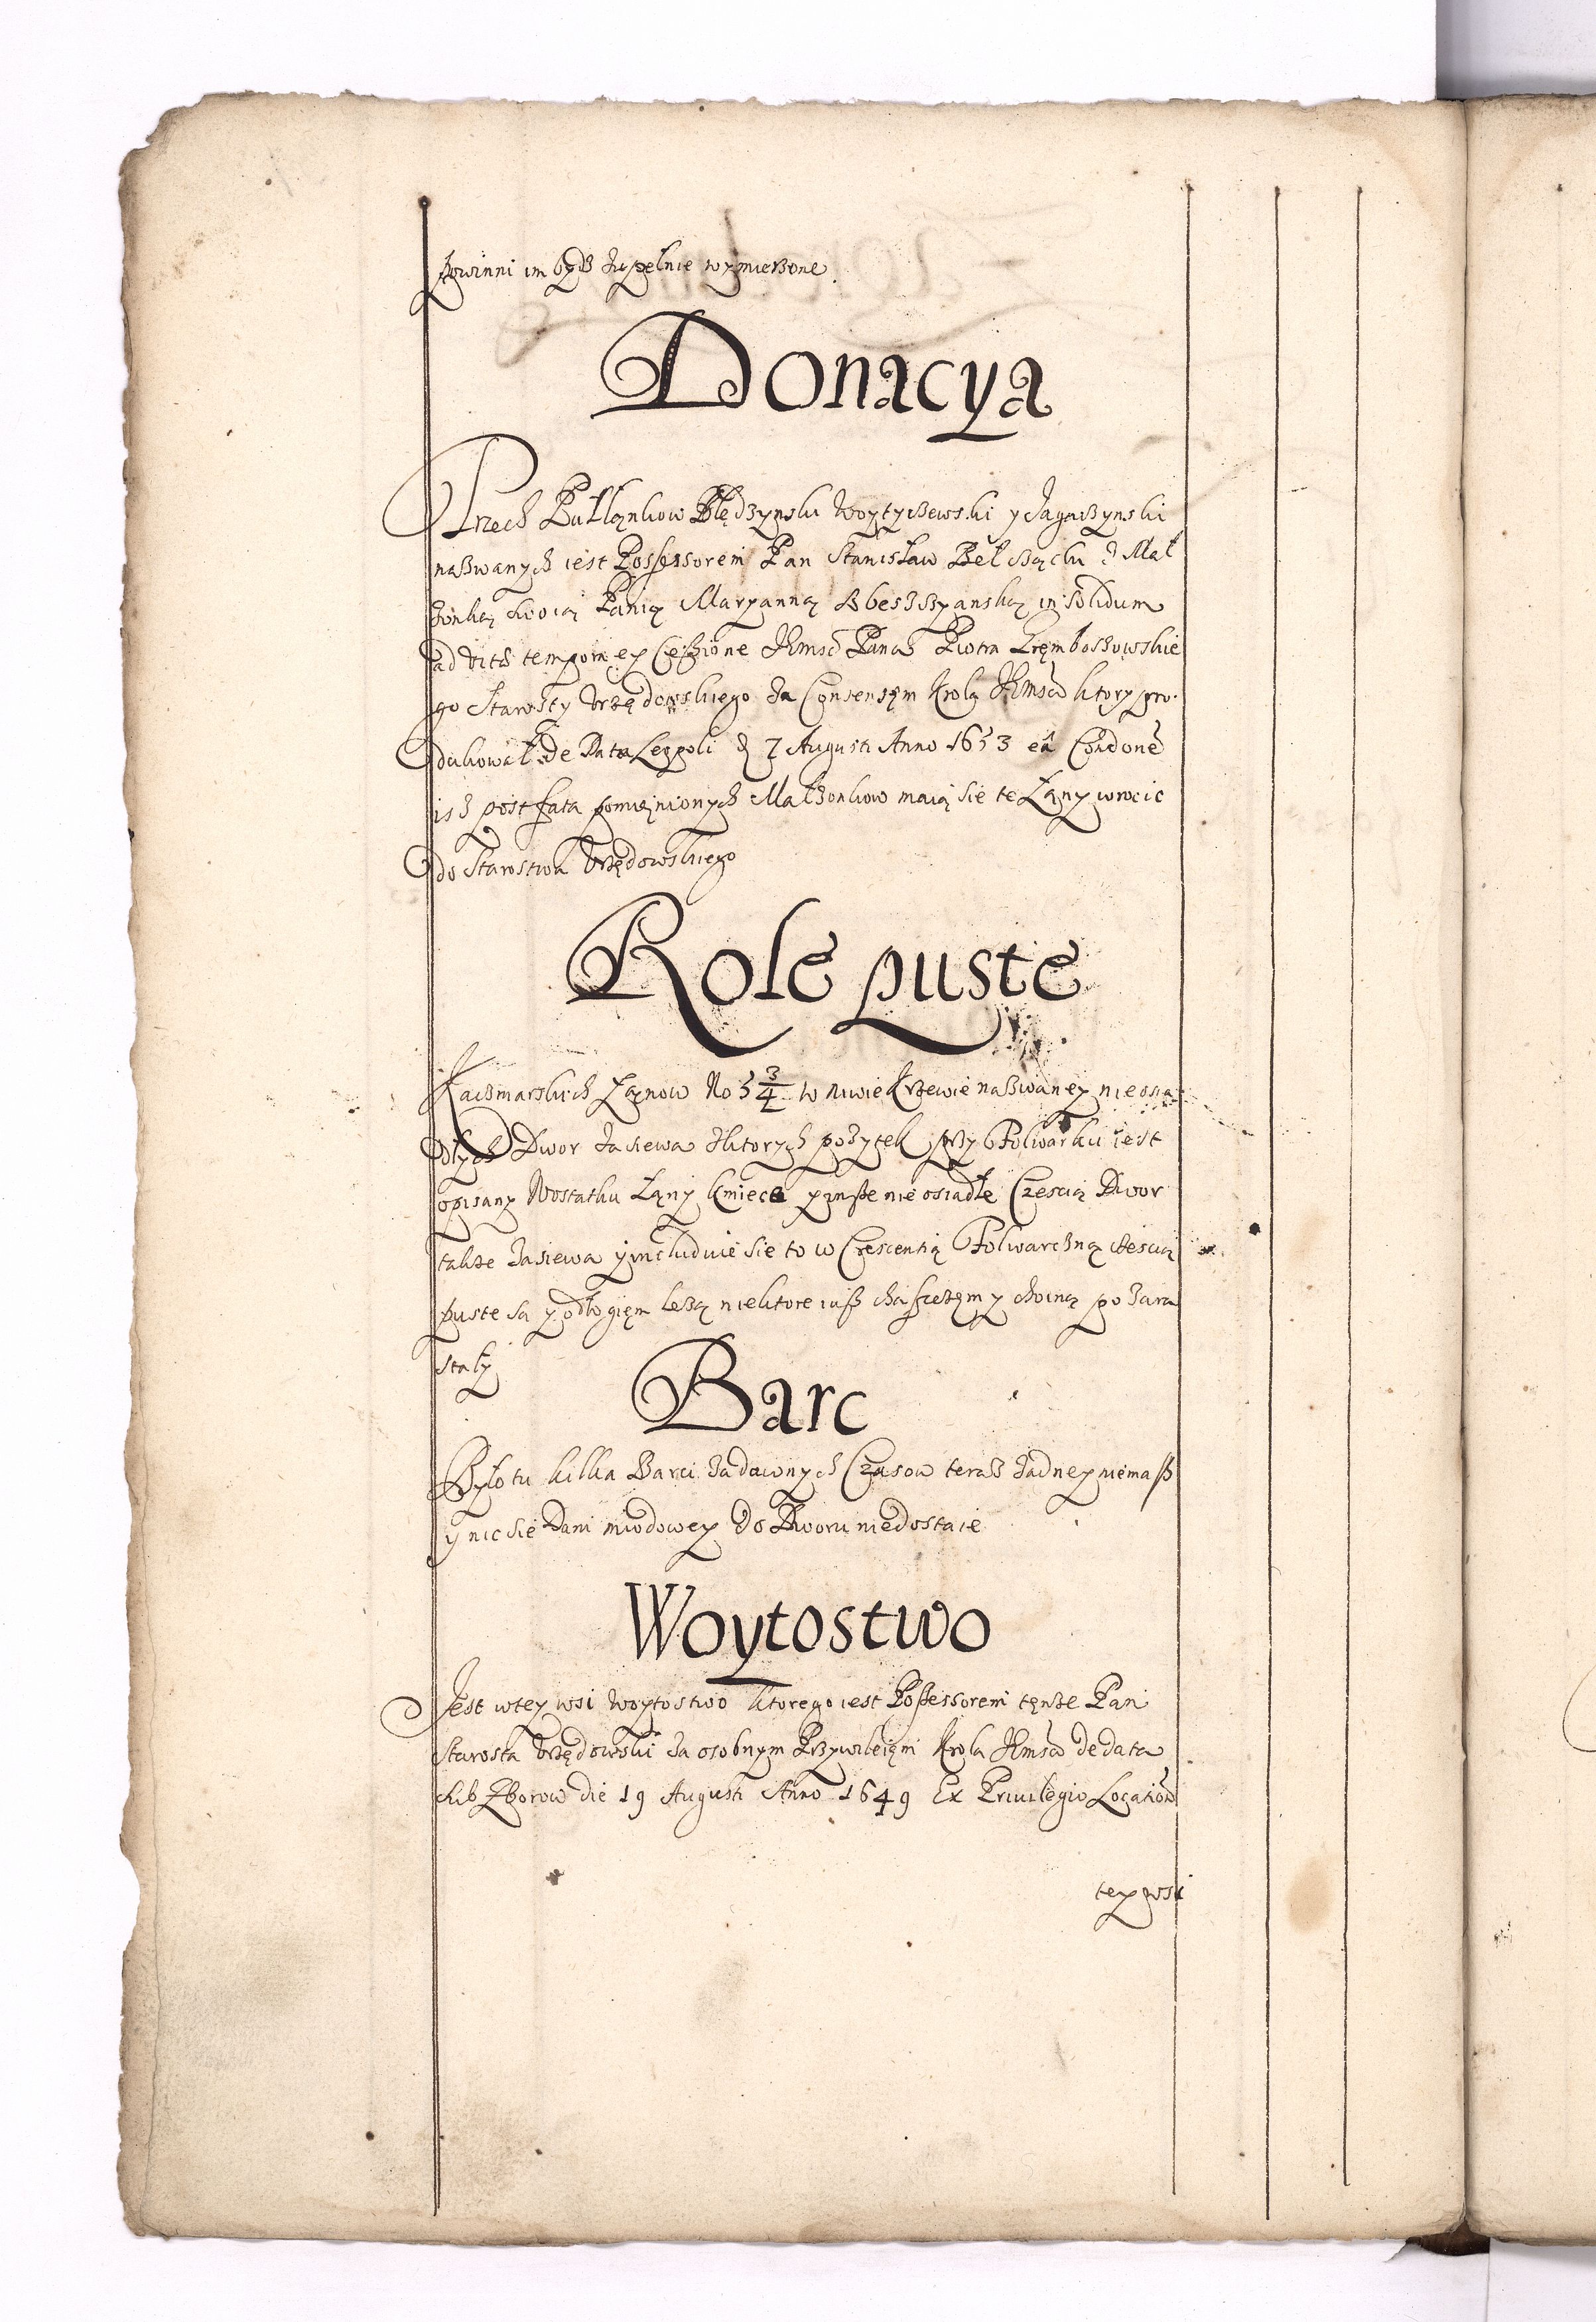 powinni im bydz zupełnie wymierzone
Donacya
Trzech Pułłąnkow Błędzynski Woytyszewski y Jagaszynski
nazwanych iest Possessorem Pan Stanisław Beł z Mał
zonką swoią Panią Maryanną in solidum
ad vitae tempora ex Cessione Jmsci Pana Piotra
go Starosty Vrzędowskiego za Consensem Krola Jmsci ktory pro-
dukował de Data Leopoli d 7 Augusti Anno 1653 ea Condōne
isz post fata pomięnionych Małzonkow maią sie te Łąny wrocic
do Starostwa Vrzędowskiego
Role puste
Kaczmarskich Łąnow No 5 3/4 w niwie Krzewie nazwaney nieosia
dłych Dwor zasiewa z ktorych pozytek przy Folwarku iest
opisany Wostatku Łąny kmiece puste nie osiadłe Czescią Dwor
takze zasiewa y includuie sie to w Crescentią Folwarczną czescią
puste są y odłogięm lezą niektore iusz y choiną po zara
stały
Barc
Było tu kilka Barci za dawnych Czasow teraz zadney niemasz
y nic sie Dani miodowey do Dworu niedostaie
Woytostwo
Jest w tey wsi Woytostwo ktorego iest Possessorem tęnze Pan
Starosta Vrzędowski za osobnym Przywileięm Krola Jmsci de data
Zborow die 19 Augusti Anno 1649 Ex Privilegio Location
tey wsi